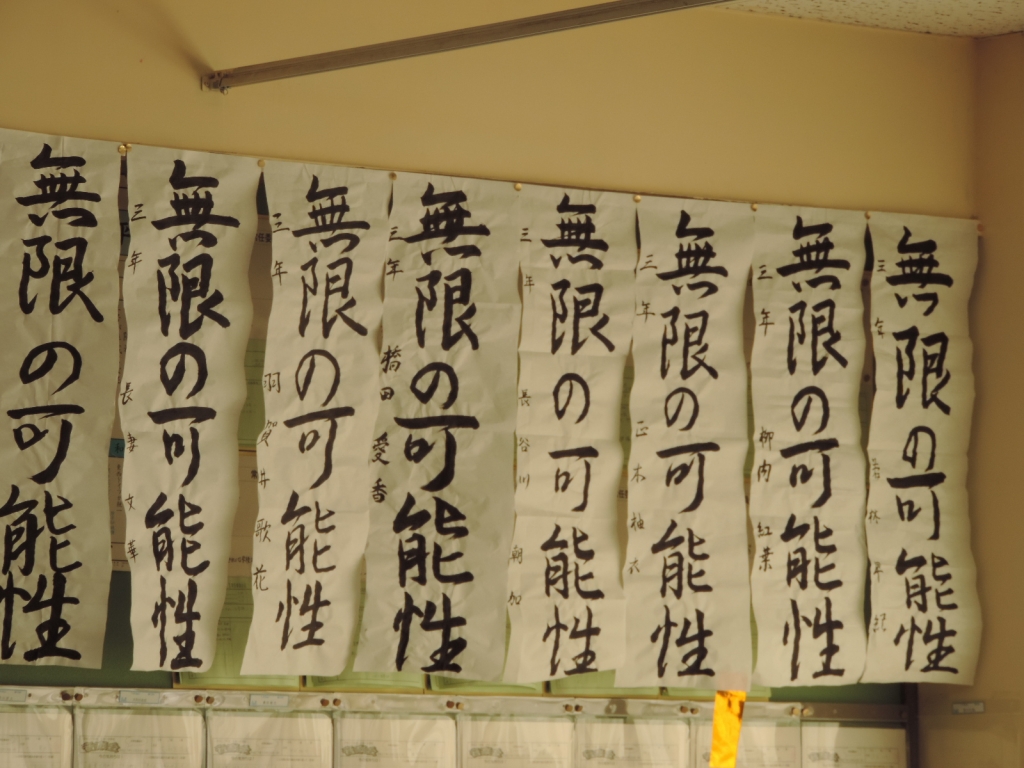 無限の可能性
三年
無限の可能性
三年 柳内 紅葉
無限の可能性
三年 正木
無限の可能性
三年 長谷川 朝加
無限の可能性
三年 橋田 愛香
無限の可能性
三年 羽賀井 歌花
無限の可能性
三年 長妻 文華
無限の可能性